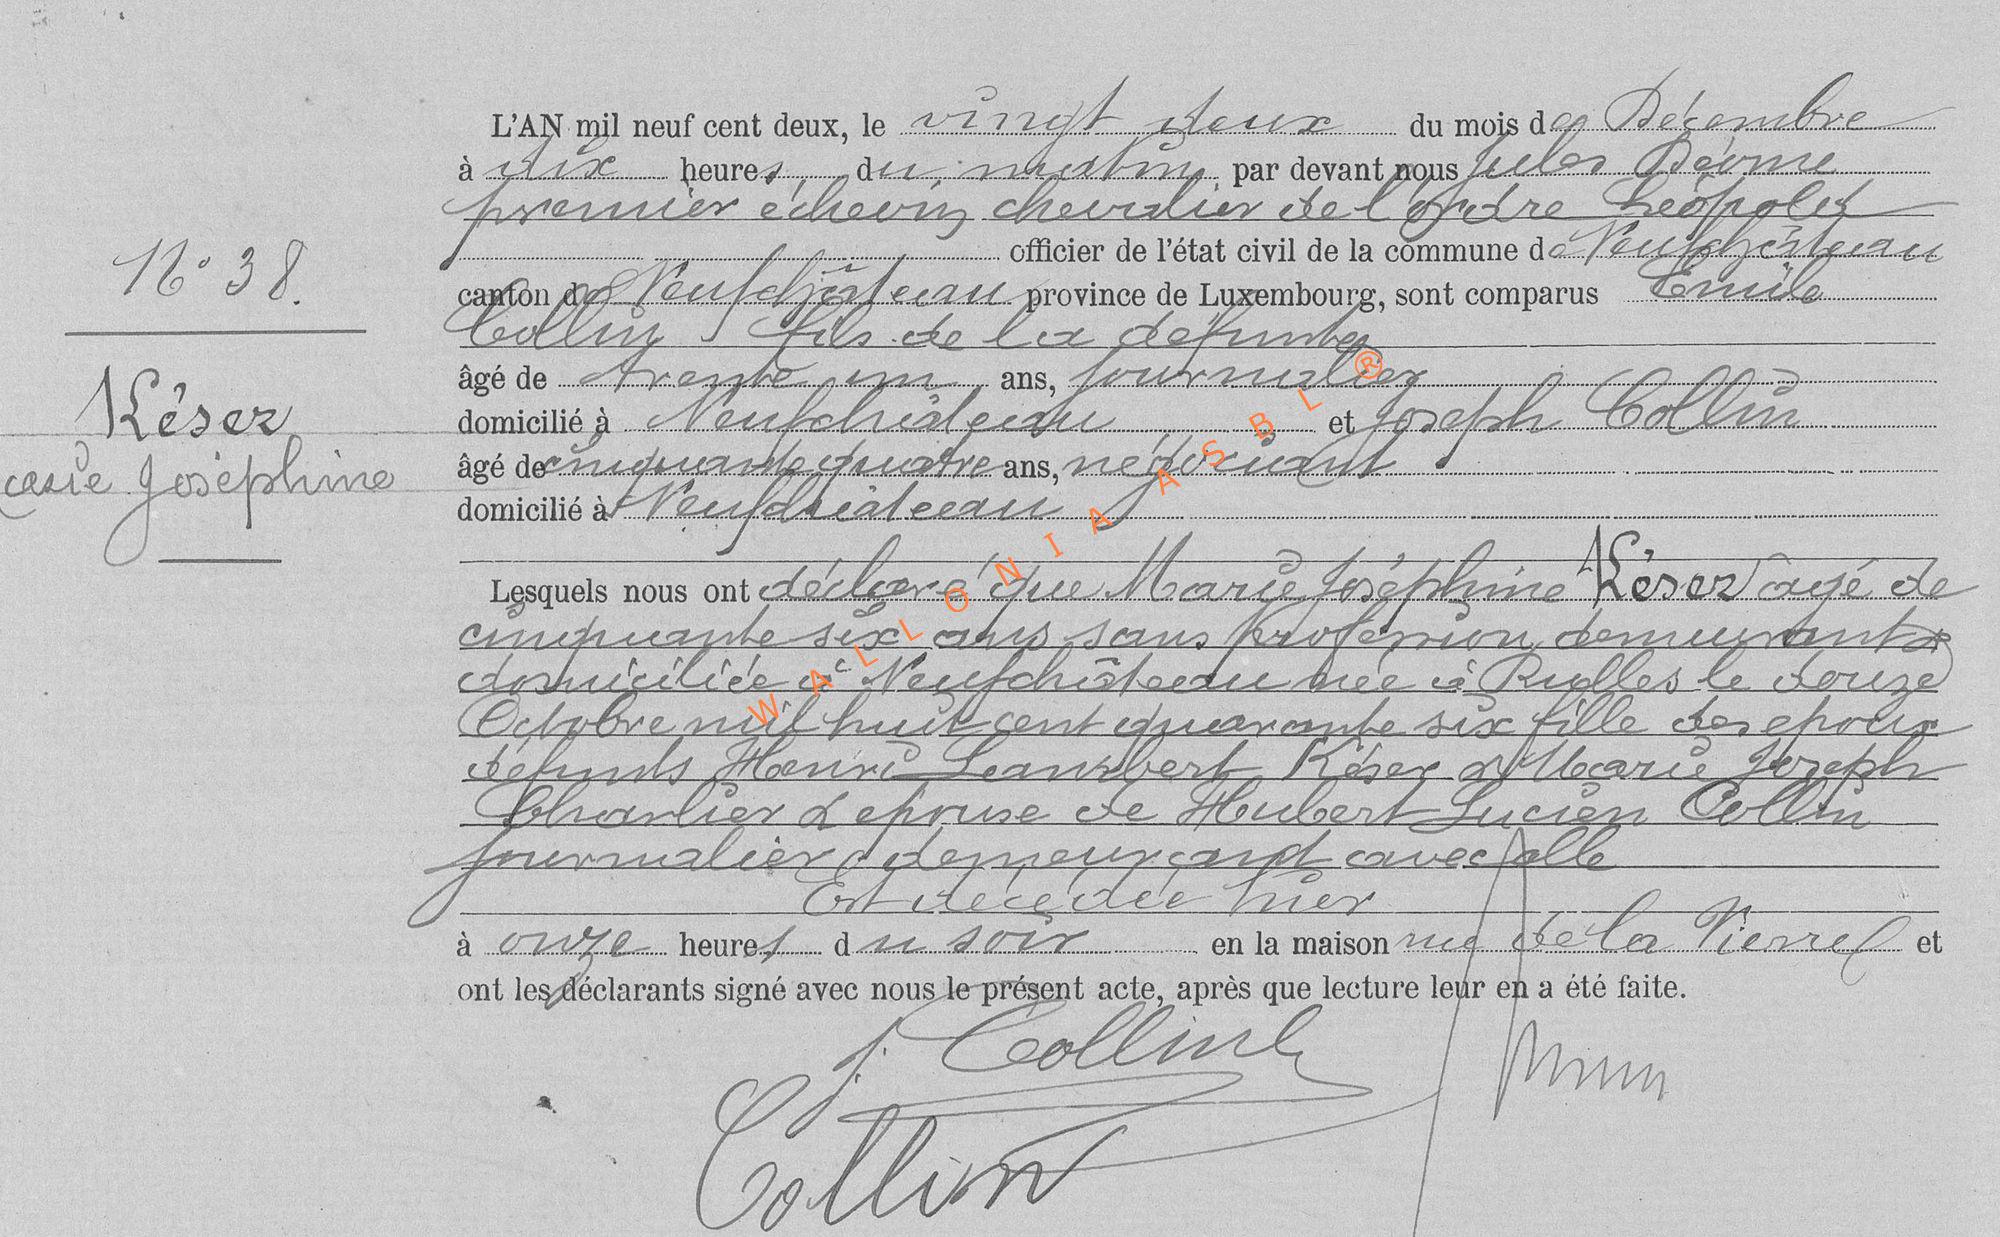 L'AN mil neuf cent deux, le vingt deux du mois de Décembre
à dix heures, du matin par devant nous Jules
premier échevin, chevalier de l'ordre Léopold
officier de l'état civil de la commune de Neufchâteau
N° 38.
canton de Neufchâteau province de Luxembourg, sont comparus Emile
Collin, fils de la défunte
âgé de trente un ans, journalier
Késer
domicilié à Neufchâteau et Joseph Collin
âgé de cinquante quatre ans, négociant
arie Joséphine
domicilié à Neufchâteau
Lesquels nous ont déclaré que Marie Joséphine Késer agé de
cinquante six ans sans profession, demeurant &
domiciliée à Neufchâteau née à Rulles le douze
Octobre mil huit cent quarante six fille des epoux
défunts Henri Lambert Késer & Marie Joseph
Charlier & epouse de Hubert Lucien Collin
journalier demeurant avec elle
Est décédée hier
à onze heures du soir en la maison rue de la Pierre et
ont les déclarants signé avec nous le présent acte, après que lecture leur en a été faite.
J. Collin
Collin
WALLONIA ASBL ®